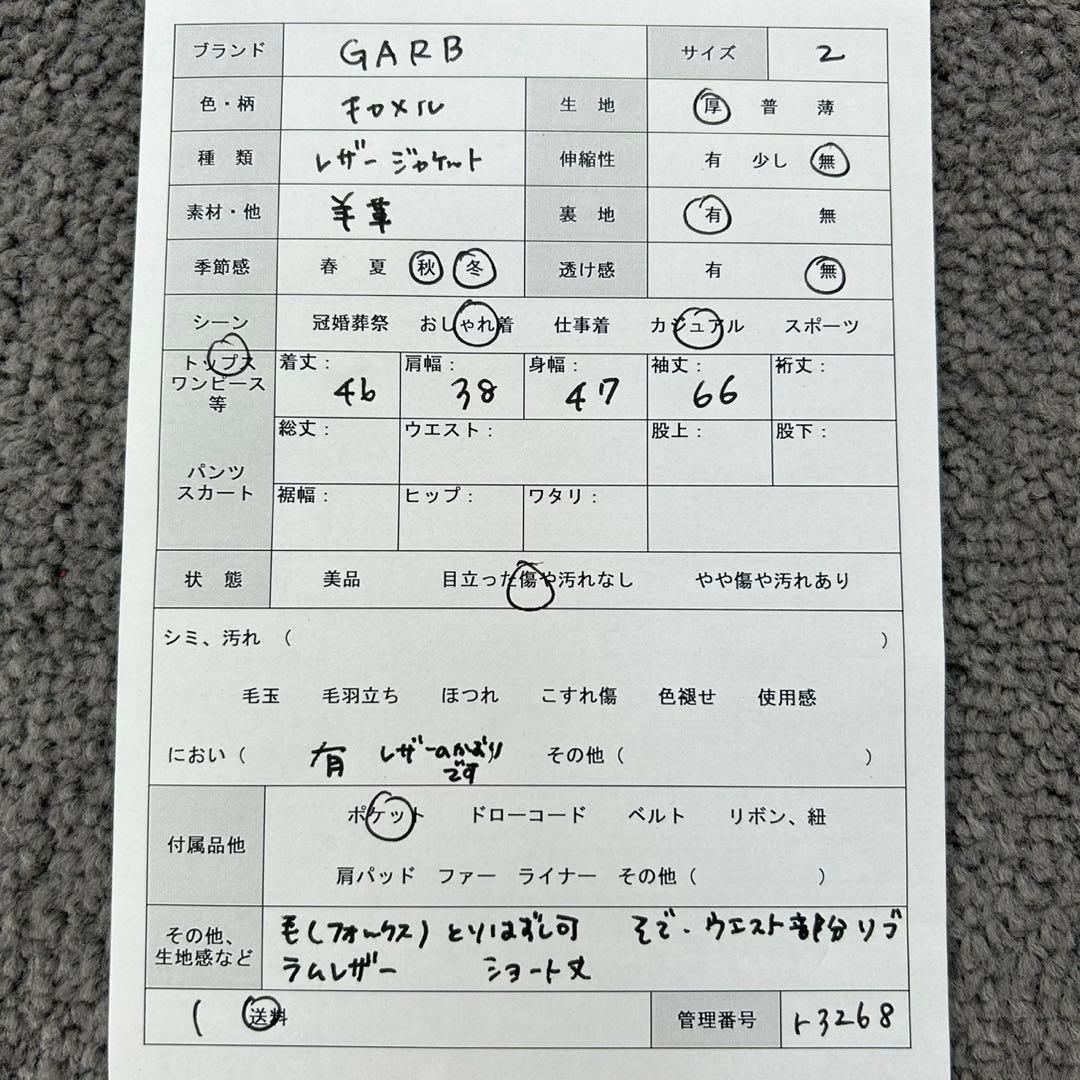 ブランド GARB サイズ 2
色・柄 キャメル 生地 厚 普 薄
種類 レザージャケット 伸縮性 有 少し 無
素材・他 羊革 裏地 有 無
季節感 春 夏 秋 冬 透け感 有 無
シーン 冠婚葬祭 おしゃれ着 仕事着 カジュアル スポーツ
トップス
ワンピース
等
着丈: 46 肩幅: 38 身幅: 47 袖丈: 66 裄丈:
総丈: ウエスト: 股上: 股下:
パンツ
スカート
裾幅: ヒップ: ワタリ:
状態 美品 目立った傷や汚れなし やや傷や汚れあり
シミ、汚れ ( )
毛玉 毛羽立ち ほつれ こすれ傷 色褪せ 使用感
におい( 有 レザーのかおり
です
その他( )
付属品他 ポケット ドローコード ベルト リボン、紐
肩パッド ファー ライナー その他( )
その他、
生地感など
毛(フォックス)とりはずし可 そで・ウエスト部分リブ
ラムレザー ショート丈
送料 管理番号 ト3268